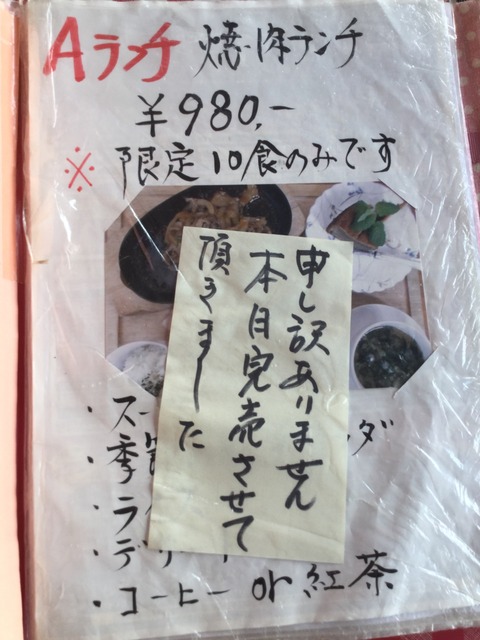 Aランチ 焼肉ランチ
¥980,-
※ 限定10食のみです
申し訳ありません
本日完売させて
頂きました
・スー ダ
・季
・ラ
・デ
・コーヒー or 紅茶